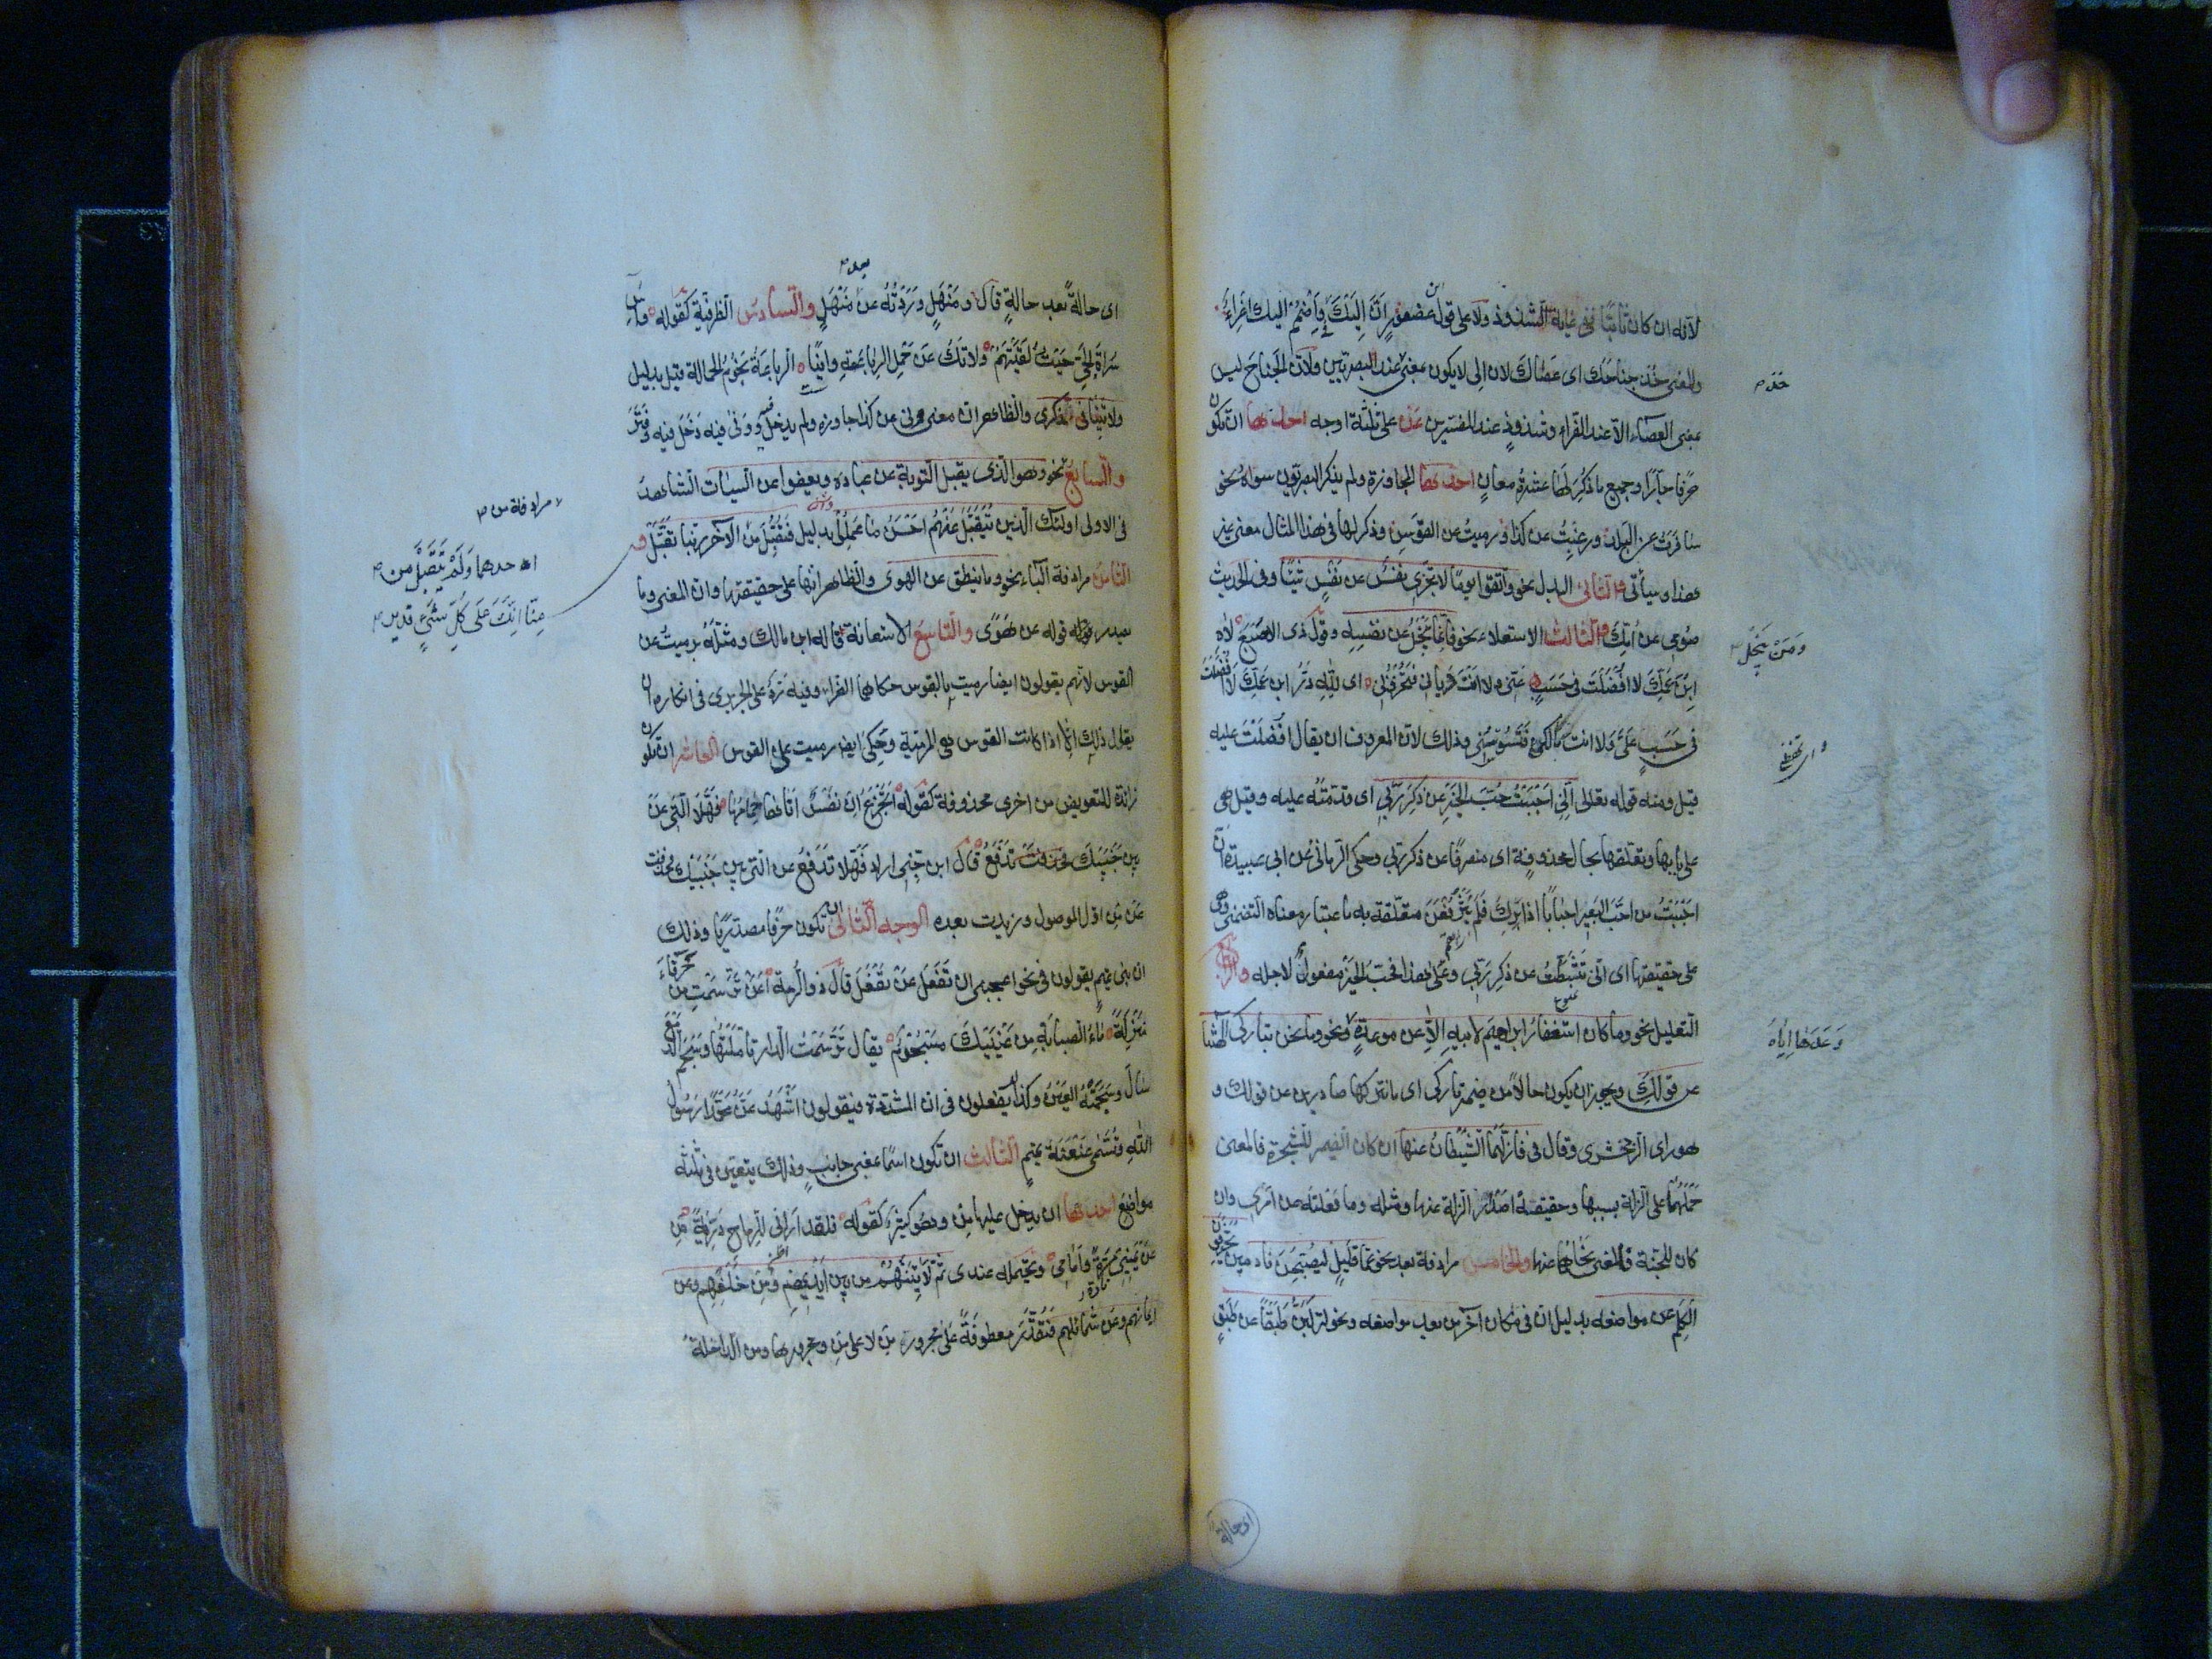 لانه ان كان ثابتا ففي غاية الشذوذ ولا على قول بعضهم ان اليك في واضمم اليك اغراء
والمعنى خذ جناحك اى عصاك لان الى لا يكون بمعنى خذ عند البصريين ولان الجناح ليس
خذ
بمعنى العصاء الا عند الفراء وشذوذ عند المفسرين عن على ثلثة اوجه احدها ان تكون
حرفا جارا وجميع ما ذكر لها عشرة معان احدها المجاوزة ولم يذكر البصريون سواه نحو
سافرت عن البلد ورغبت عن كذا ورميت عن القوس وذكر لها في هذا المثال معنى غير
هذا وسيأتى والثانى البدل نحو واتقوا يوما لا تجزى نفس عن نفس شيئا وفى الحديث
صومى عن امك والثالث الاستعلاء نحو فانما يبخل عن نفسه وقول ذى الاصبع لاه
ومن يبخل
ابن عمك لا افضلت في حسب عنى ولا انت ديانى فتخزونى اى لله در ابن عمك لا افضلت
في حسب على ولا انت مالكى فتسوسنى وذلك لان المعروف ان يقال افضلت عليه
قيل ومنه قوله تعالى انى احببت حب الخير عن ذكر ربى اى قدمته عليه وقيل هى
على بابها وتعلقها بحال محذوفة اى منصرفا عن ذكر ربى وحكى الرمانى عن ابى عبيدة ان
احببت من احب البعير احبابا اذا برك فلم يثر فعن متعلقة به باعتبار معناه التضمنى وهى
على حقيقتها اى انى تثبطت عن ذكر ربى وعلى هذا فحب الخير مفعول لاجله والرابع
التعليل نحو وما كان استغفار ابراهيم لابيه الا عن موعدة ونحو وما نحن بتاركى آلهتنا
وعدها اياه
عن قولك ويجوز ان يكون حالا من ضمير تاركى اى ما نتركها صادرين عن قولك و
هو راى الزمخشرى وقال فى فازلهما الشيطان عنها ان كان الضمير للشجرة فالمعنى
حملهما على الزلة بسببها وحقيقته اصدر الزلة عنها ومثله وما فعلته عن امرى وان
كان للجنة فالمعنى نحاهما عنها والخامس مرادفة بعد نحو عما قليل ليصبحن نادمين يحرفون
الكلم عن مواضعه بدليل ان فى مكان آخر من بعد مواضعه ونحو لتركبن طبقا عن طبق
اى حالة
اى حالة بعد حالة قال ومنهل وردته عن منهل والسادس الظرفية كقوله وآس
بعد
سراة الحى حيث لقيتهم ولا تك عن حمل الرباعة وانيا الرباعة نجوم الحمالة قيل بدليل
ولا تنيا فى ذكرى والظاهر ان معنى ونى عن كذا جاوزه ولم يدخل فيه وونى فيه دخل فيه وفتر
والسابع نحو وهو الذى يقبل التوبة عن عباده ويعفوا عن السيئات الشاهد
مرادفة من
فى الاولى اولئك الذين نتقبل عنهم احسن ما عملوا بدليل فتقبل من الآخر ربنا تقبل
احدهما ولم يتقبل من
منا انك على كل شىء قدير
الثامن مرادفة الباء نحو وما ينطق عن الهوى والظاهر انها على حقيقتها وان المعنى وما
يصدر قوله عن هوى والتاسع الاستعانة قاله ابن مالك ومثله برميت عن
القوس لانهم يقولون ايضا رميت بالقوس حكاهما الفراء وفيه رد على الحريرى فى انكاره ان
يقال ذلك الا اذا كانت القوس هى المرمية وحكى ايضا رميت على القوس العاشر ان تكون
زائدة للتعويض من اخرى محذوفة كقوله اتجزع ان نفس اتاها حمامها فهلا التى عن
بين جنبيك تدفع قال ابن جنى اراد فهلا تدفع عن التى بين جنبيك فحذفت
عن من اول الموصول وزيدت بعده الوجه الثانى ان تكون حرفا مصدريا وذلك
ان بنى تميم يقولون فى نحو اعجبنى ان تفعل عن تفعل قال ذو الرمة اعن ترسمت من خرقاء
منزلة ماء الصبابة من عينيك مسجوم يقال ترسمت الدار تاملتها وسجم الدمع
سال وسجمته العين وكذا يفعلون فى ان المشددة فيقولون اشهد عن محمدا رسول
الله وتسمى عنعنة تميم الثالث ان تكون اسما بمعنى جانب وذلك يتعين فى ثلثة
مواضع احدها ان يدخل عليها من وهو كثير كقوله فلقد ارانى للرماح درية من
عن يمينى مرة وامامى ويحتمله عندى ثم لآتينهم من بين ايديهم ومن خلفهم وعن
ايمانهم وعن شمائلهم فتقدر معطوفة على مجرور من لا على من ومجرورها ومن الداخلة